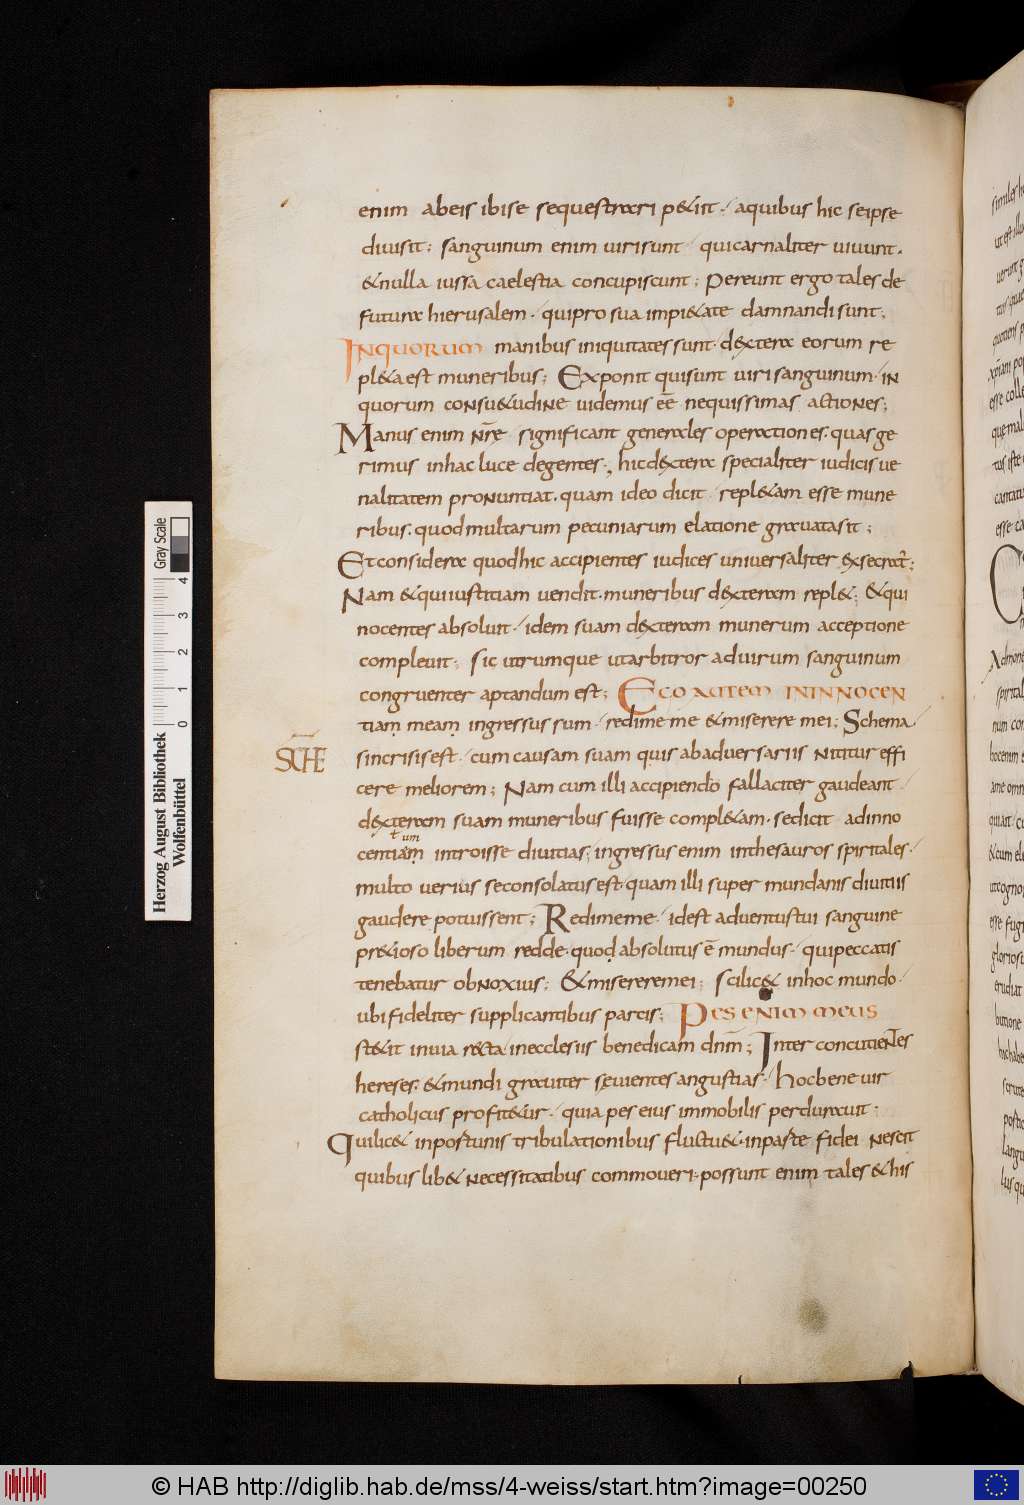 enim abeis ibise sequestrari p&iit · aquibus hic seipse
diuisit : sanguinum enim uiri sunt quicarnaliter uiuunt .
&nulla iussa caelestia concupiscunt : Pereunt ergo tales de
futura hierusalem · quipro sua impi&ate damnandi sunt ;
INQUORUM manibus iniquitates sunt · dextera eorum re
pl&a est muneribus ; Exponit qui sunt uiri sanguinum · in
quorum consu&udine uidemus eē nequissimas actiones ;
Manus enim nr̄e significant generales operationes . quas ge
rimus inhac luce degentes ; hic dextera specialiter iudicis ue
nalitatem pronuntiat . quam ideo dicit repl&am esse mune
ribus . quod multarum pecuniarum elatione grauata sit ;
Et considera quod hic accipientes iudices uniuersaliter exsecrat̄ :
Nam &qui iustitiam uendit . muneribus dexteram repl& ; &qui
nocentes absoluit · idem suam dexteram munerum acceptione
compleuit ; sic utrumque ut arbitror ad uirum sanguinum
congruenter aptandum est ; EGO AUTEM IN INNOCEN
tiaṃ meaṃ ingressus sum · redime me &miserere mei ; Schema
SCHE
sincrisis est · cum causam suam quis ab aduersariis nititur effi
cere meliorem ; Nam cum illi accipiendo fallaciter gaudeant
dexteram suam muneribus fuisse compl&am . sed icit ad inno
t um
centiaṃ introisse diuitias ; ingressus enim in thesauros spiritales ·
multo uerius se consolatus est . quam illi super mundanis diuitiis
gaudere potuissent ; Redime me · id est aduentus tui sanguine
pr&ioso liberum redde . quoḍ absolutus ē mundus · qui peccatis
tenebatur obnoxius ; &miserere mei ; scilic& in hoc mundo ·
ubi fideliter supplicantibus parcis ; PES ENIM MEUS
st&it in uia recta in ecclesiis benedicam dn̄m ; Inter concutientes
hereses . &mundi grauiter seuientes angustias · hoc bene uir
catholicus profit&ur · quia pes eius immobilis perdurauit ;
Qui lic& inportunis tribulationibus fluctu& . in parte fidei nescit
quibus lib& necessitatibus commoueri . possunt enim tales &his
Herzog August Bibliothek
Wolfenbüttel
Gray Scale
0 1 2 3 4
© HAB http://diglib.hab.de/mss/4-weiss/start.htm?image=00250